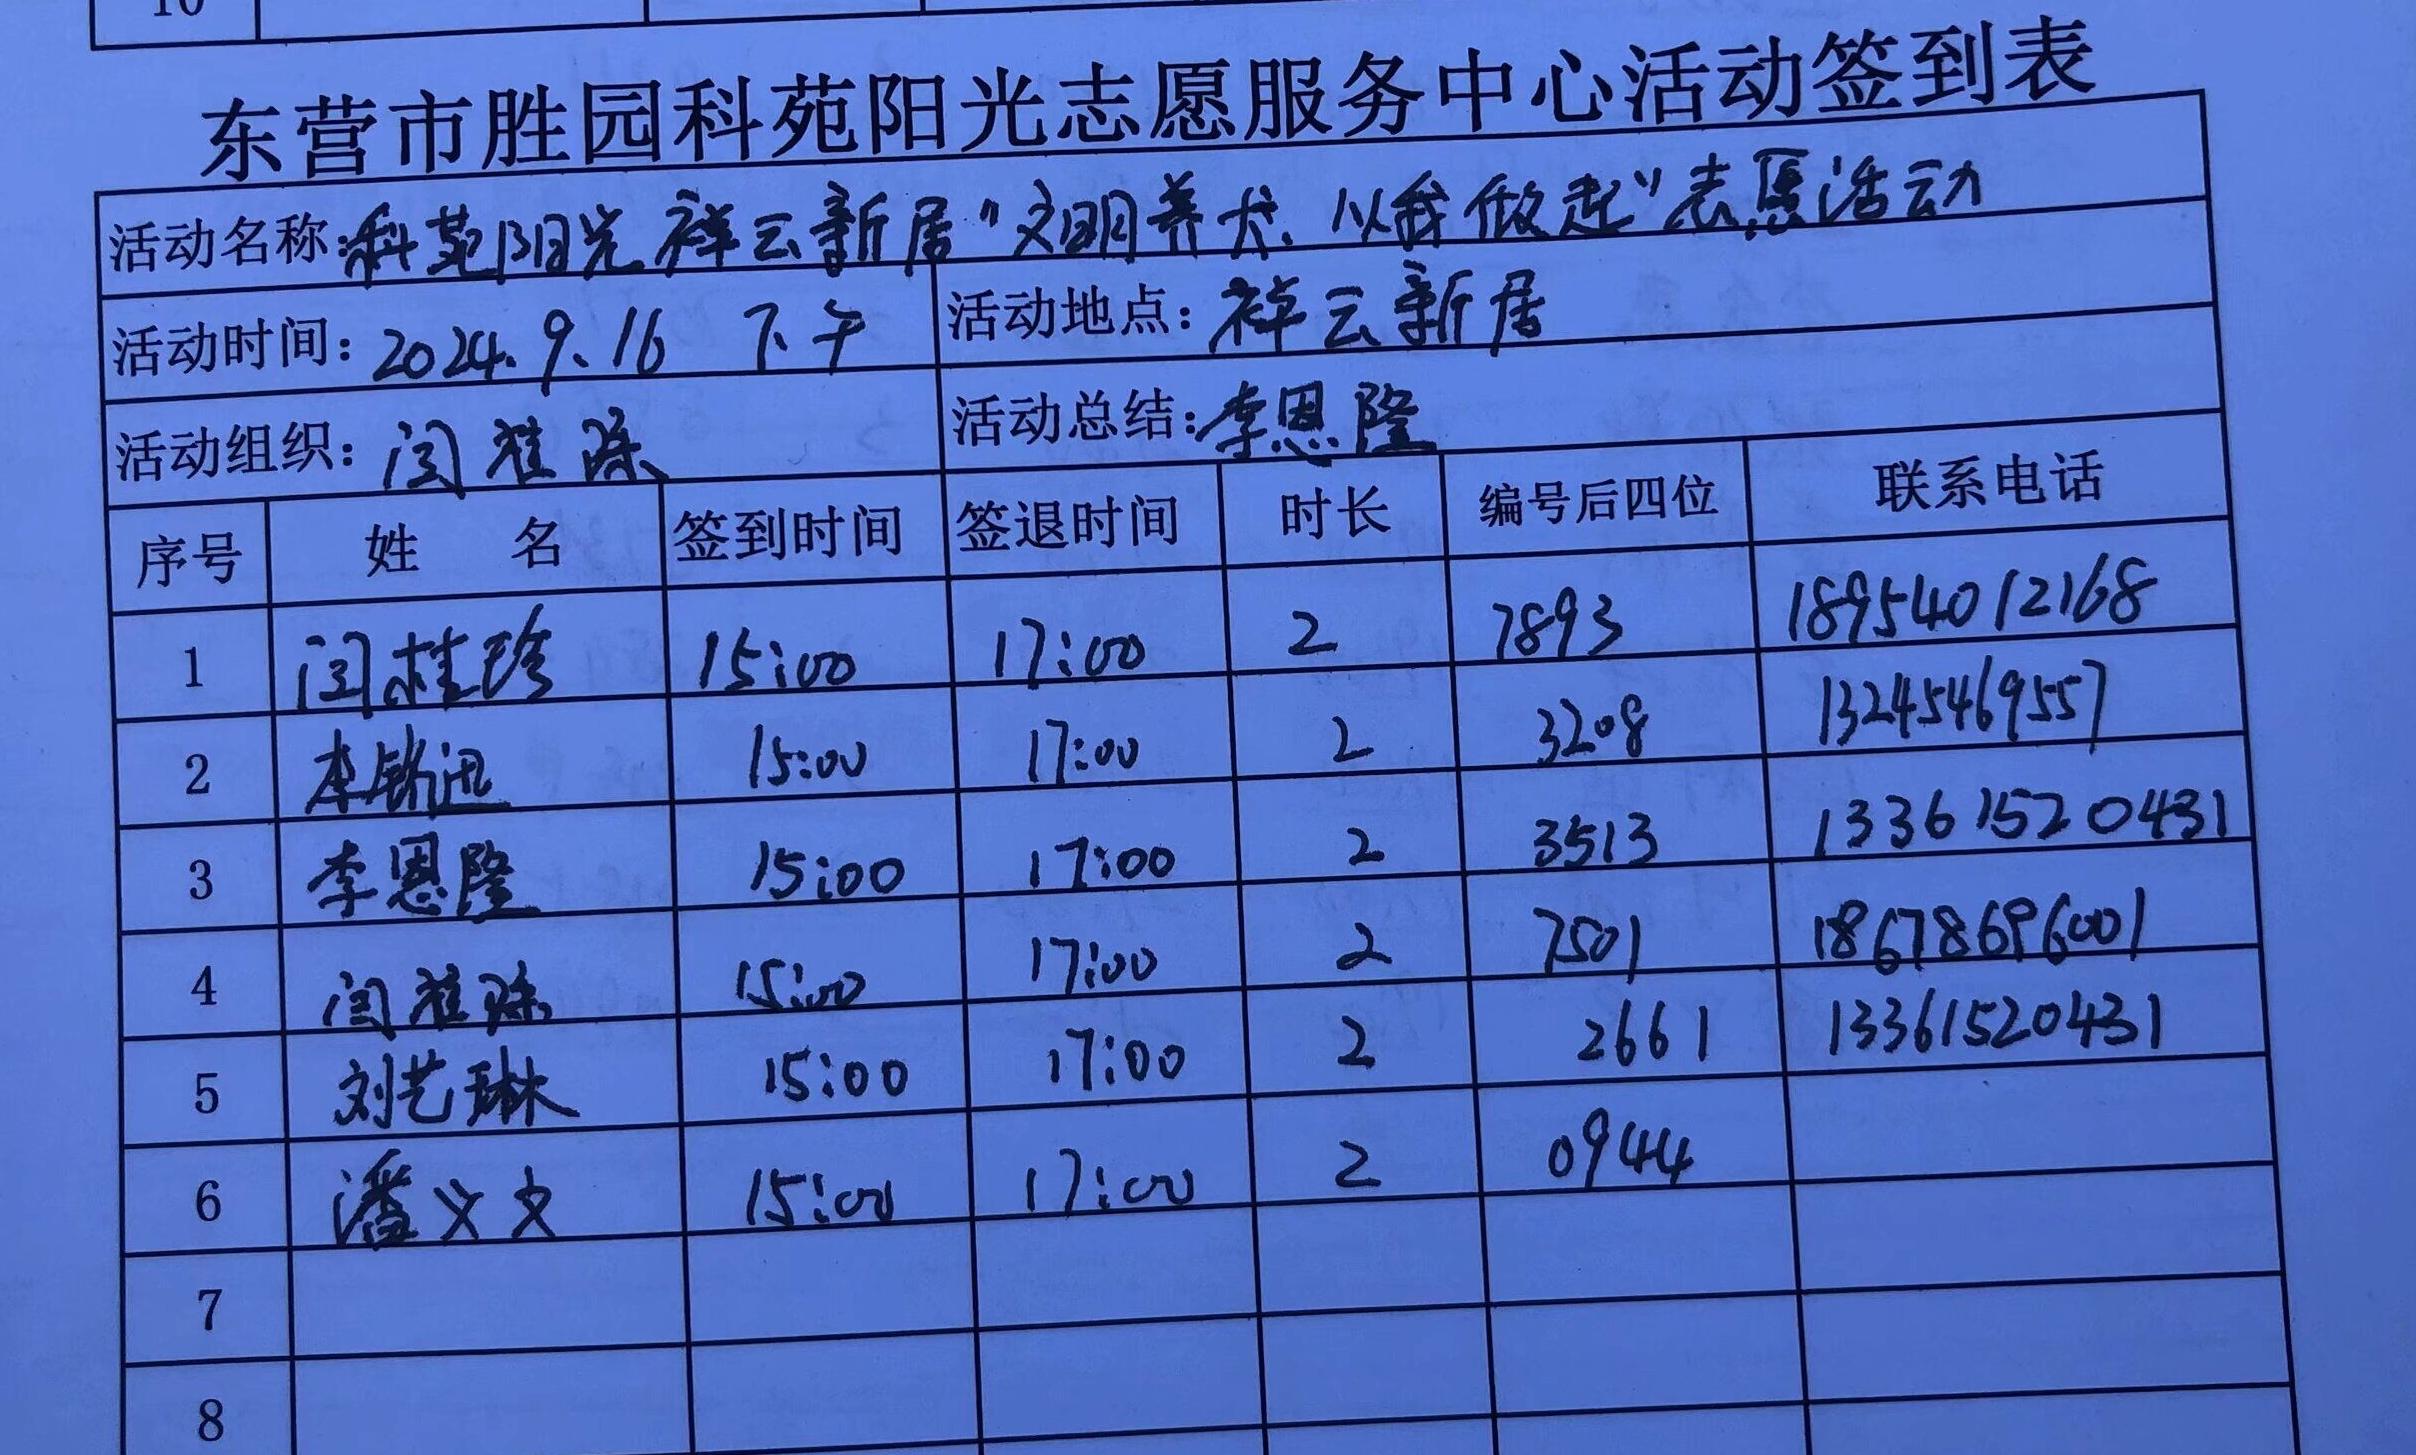 10
东营市胜园科苑阳光志愿服务中心活动签到表
活动名称:科苑阳光祥云新居"文明养犬、从我做起"志愿活动
活动时间: 2024.9.16 下午 活动地点: 祥云新居
活动组织: 闫桂珠 活动总结: 李恩隆
序号 姓 名 签到时间 签退时间 时长 编号后四位 联系电话
1 闫桂珍 15:00 17:00 2 7893 18954012168
2 李 15:00 17:00 2 3208 13245469557
3 李恩隆 15:00 17:00 2 3513 13361520431
4 闫桂珠 15:00 17:00 2 7501 18678696001
5 刘艺琳 15:00 17:00 2 2661 13361520431
6 潘义文 15:00 17:00 2 0944
7
8